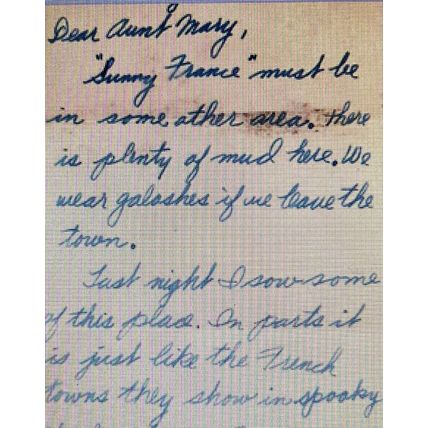 Dear Aunt Mary,
"Sunny France" must be
in some other area. There
is plenty of mud here. We
wear galoshes if we leave the
town.
Last night I saw some
of this place. In parts it
is just like the French
towns they show in spooky